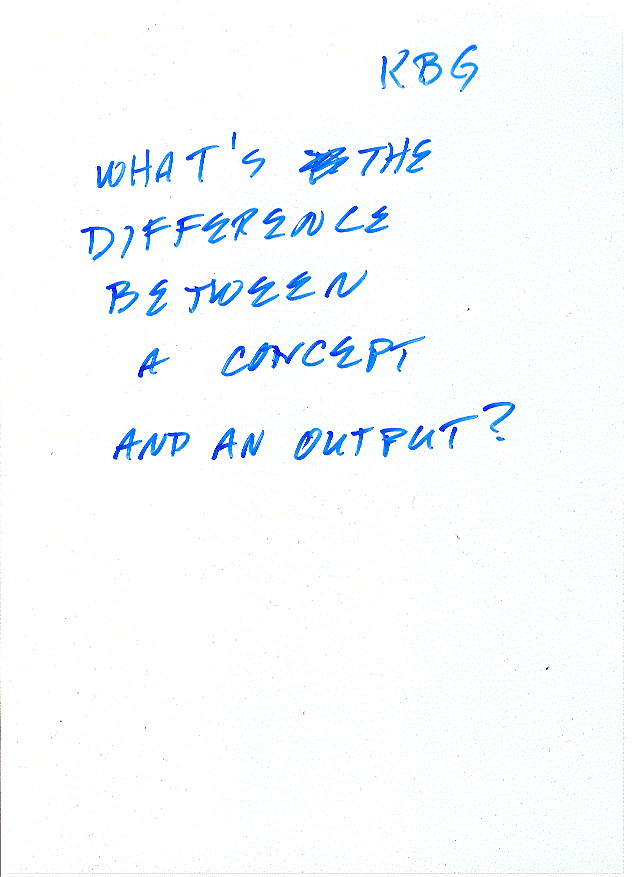 KBG
WHAT'S THE
DIFFERENCE
BETWEEN
A CONCEPT
AND AN OUTPUT?